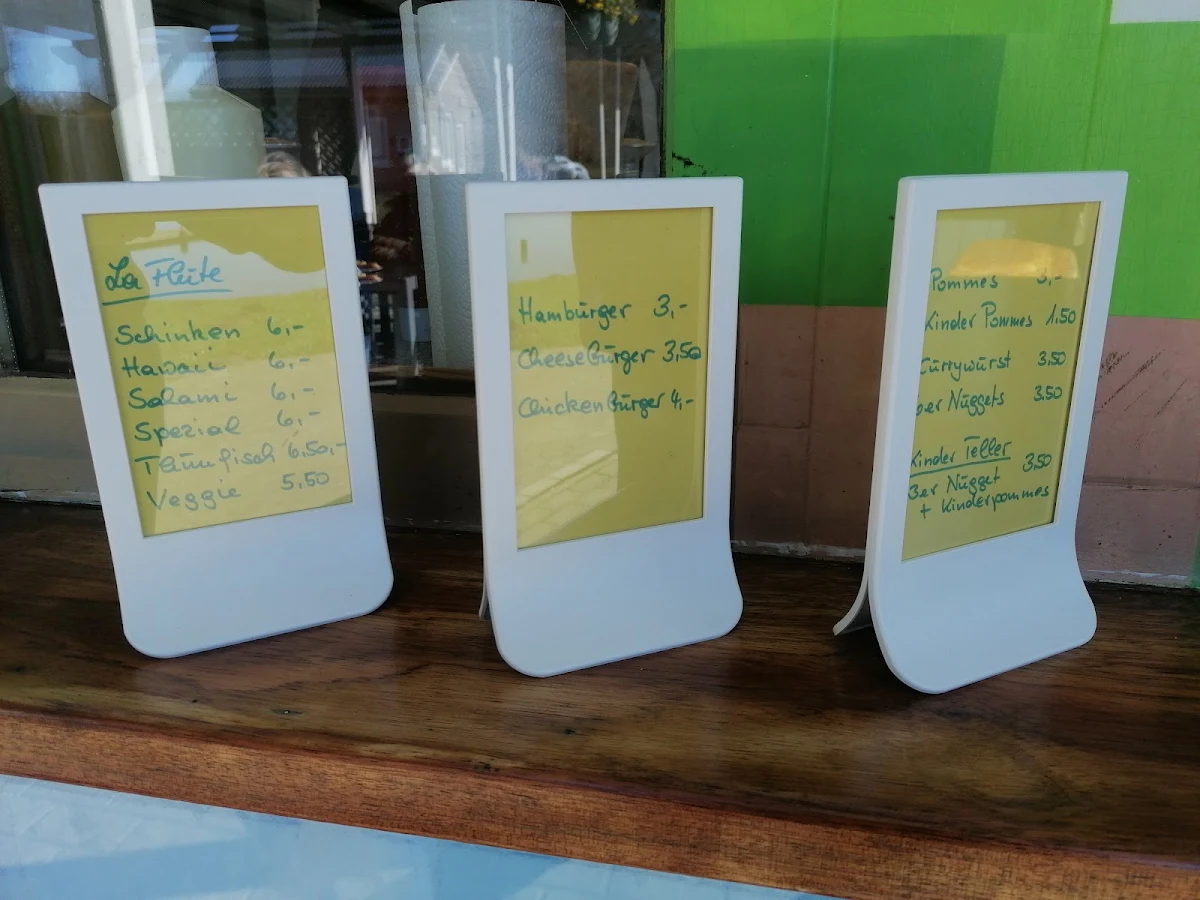 La Flûte
Schinken 6,-
Hawaii 6,-
Salami 6,-
Spezial 6,-
Thunfisch 6,50,-
Veggie 5,50
Hamburger 3,-
Cheeseburger 3,50
Chickenburger 4,-
Pommes 3,-
Kinder Pommes 1,50
Currywurst 3,50
6er Nuggets 3.50
Kinder Teller
3er Nugget 3,50
+ Kinderpommes